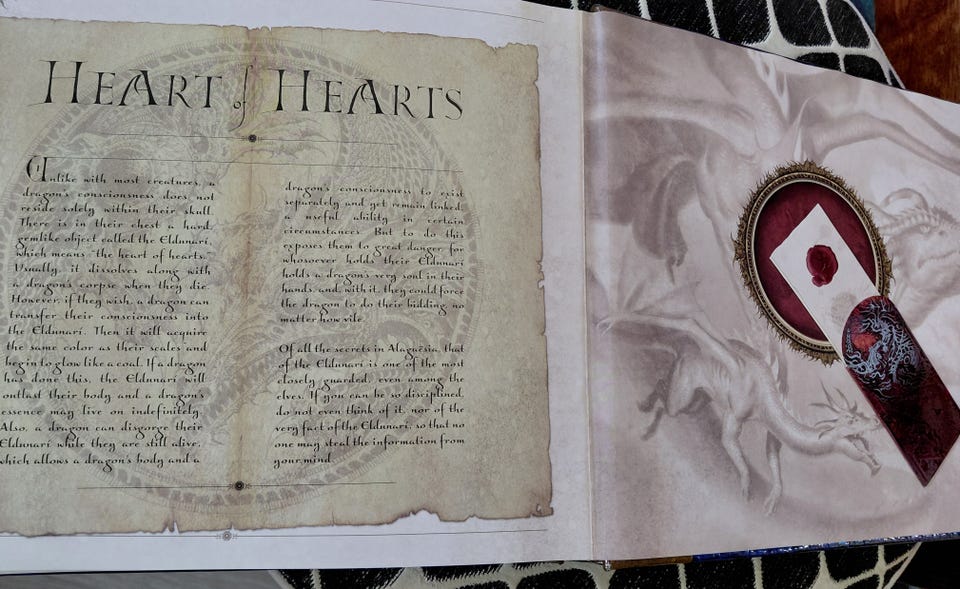 HEART of HEARTS
Unlike with most creatures, a
dragon's consciousness does not
reside solely within their skull.
There is in their chest a hard,
gemlike object called the Eldunarí,
which means "the heart of hearts."
Usually, it dissolves along with
a dragon's corpse when they die.
However, if they wish, a dragon can
transfer their consciousness into
the Eldunarí. Then it will acquire
the same color as their scales and
begin to glow like a coal. If a dragon
has done this, the Eldunarí will
outlast their body and a dragon's
essence may live on indefinitely.
Also, a dragon can disgorge their
Eldunarí while they are still alive,
which allows a dragon's body and a
dragon's consciousness to exist
separately and yet remain linked,
a useful ability in certain
circumstances. But to do this
exposes them to great danger, for
whosoever holds their Eldunarí
holds a dragon's very soul in their
hands, and, with it, they could force
the dragon to do their bidding, no
matter how vile.
Of all the secrets in Alagaësia, that
of the Eldunarí is one of the most
closely guarded, even among the
elves. If you can be so disciplined,
do not even think of it, nor of the
very fact of the Eldunarí, so that no
one may steal the information from
your mind.